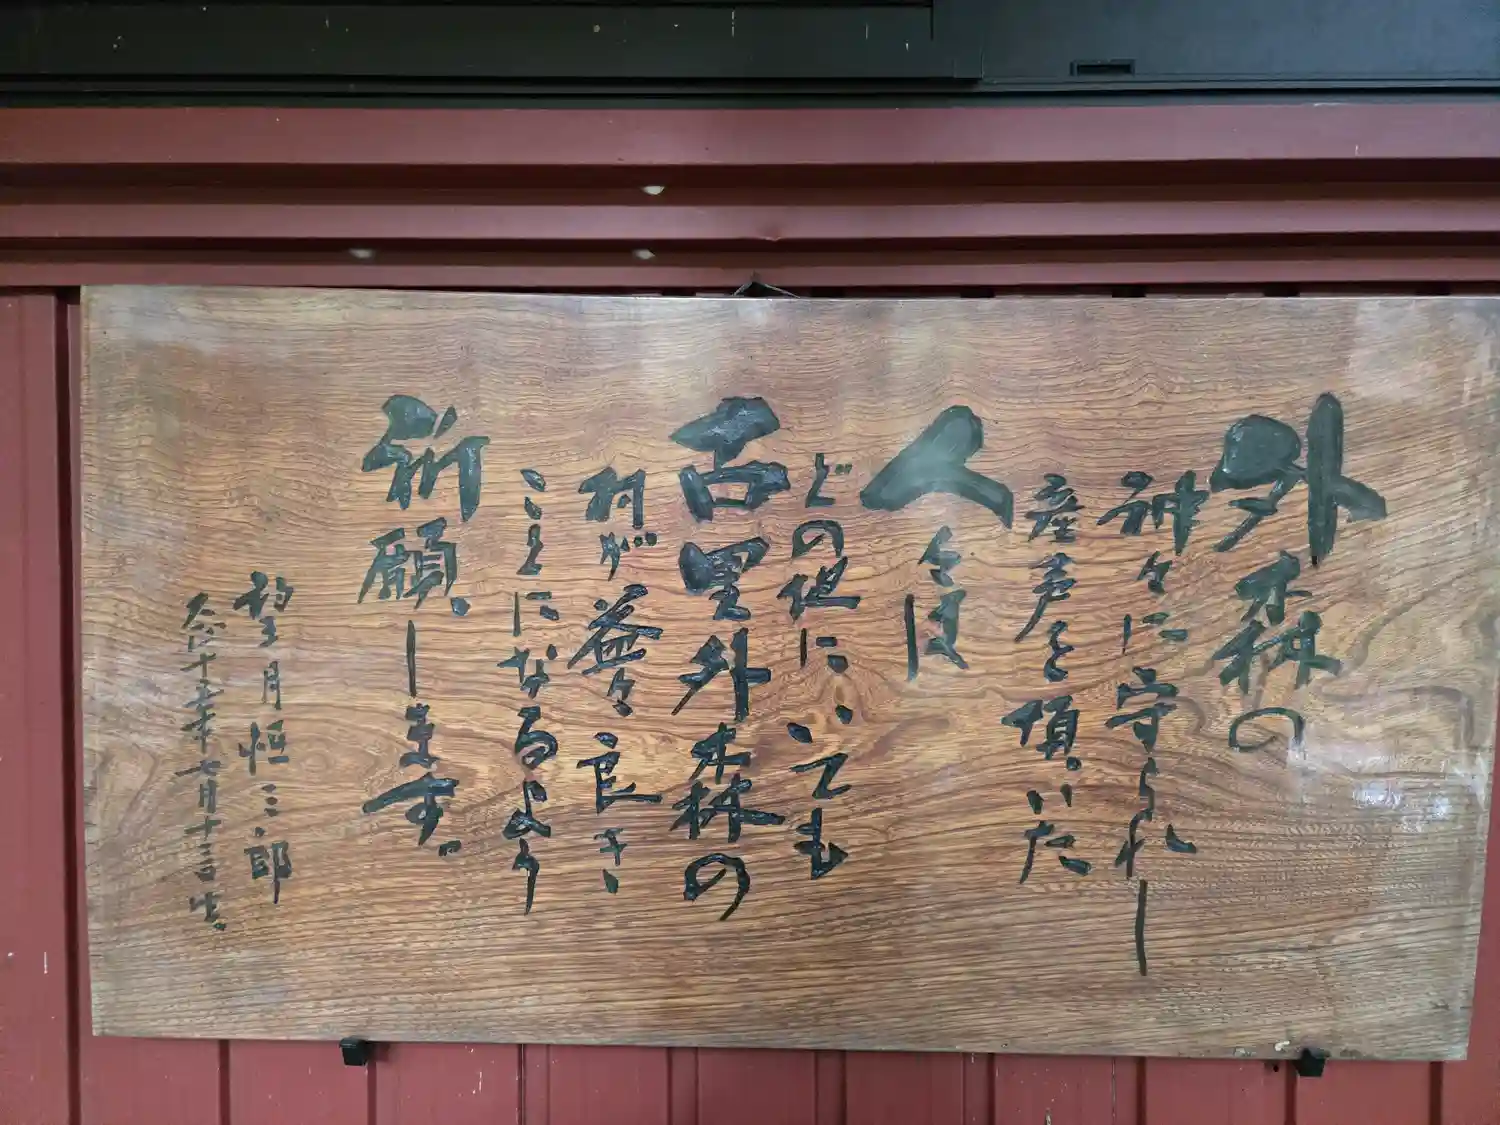 外森の
神々に守られし
産声を頂いた
人々は
どの地にいても
古里外森の
村が益々良き
ことになるよう
祈願します。
望月恒三郎
十五年七月十三日生。